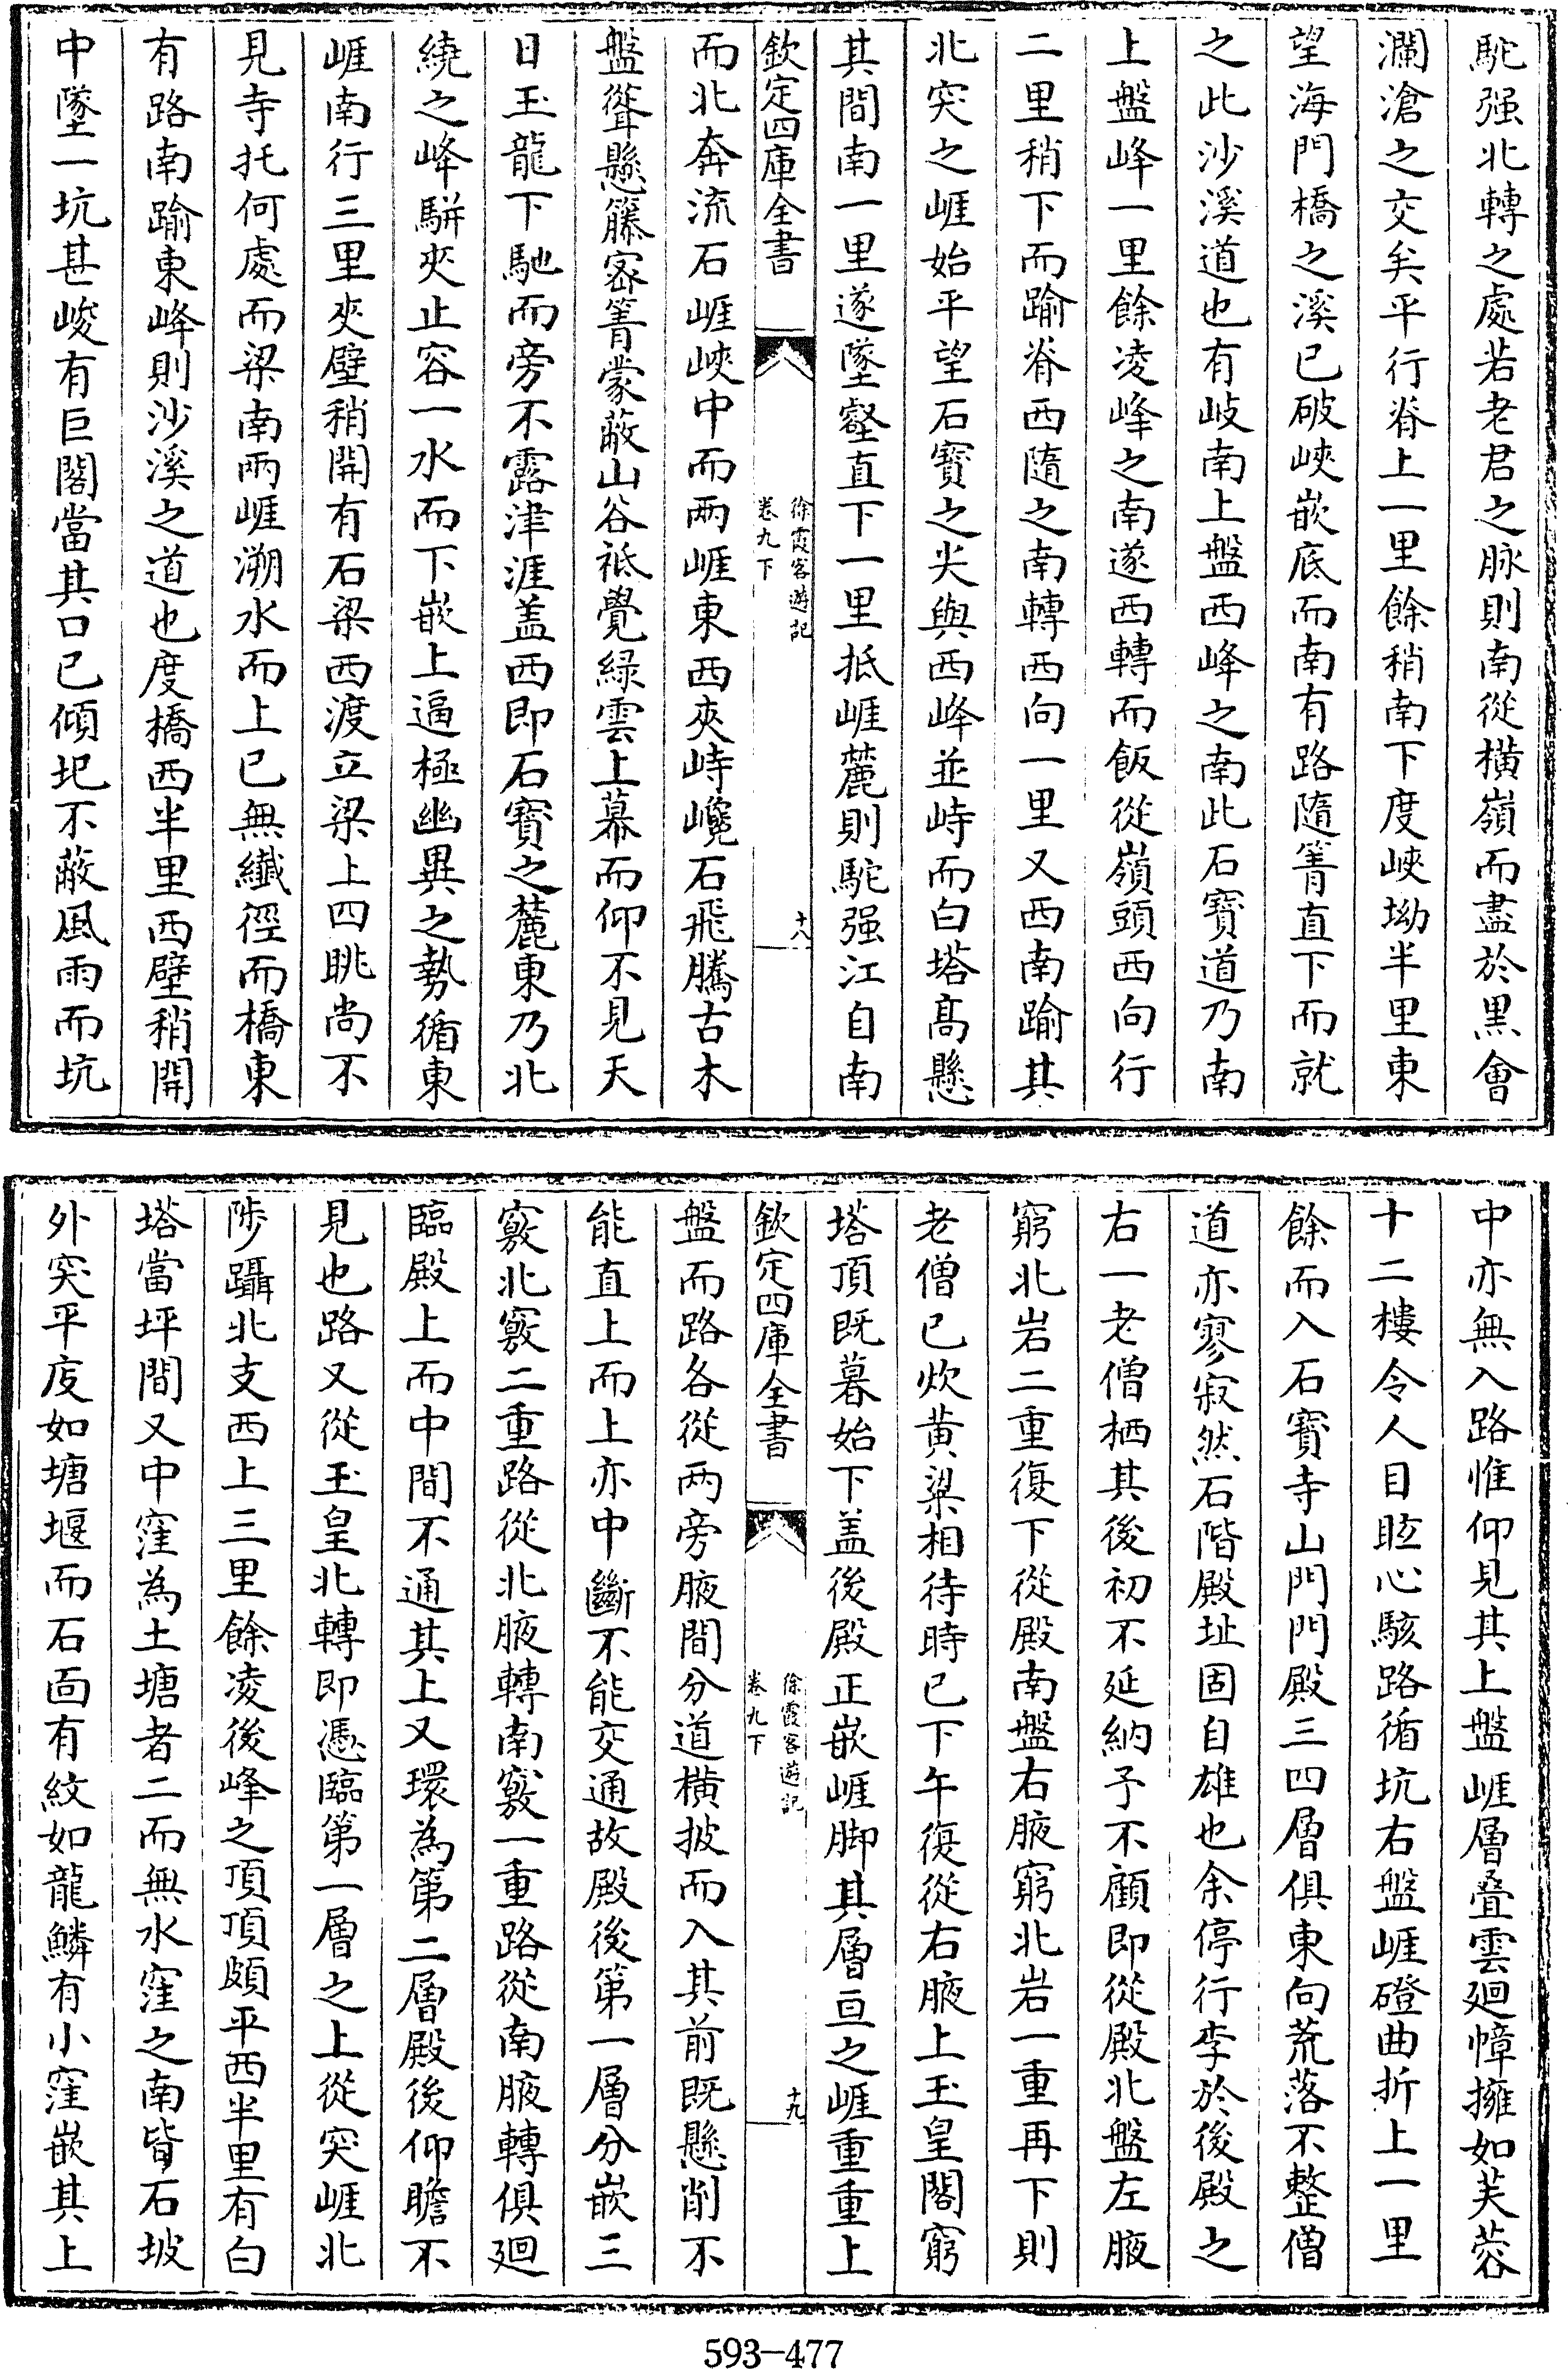 駝强北轉之處若老君之脉則南從横嶺而盡於黒會
瀾滄之交矣平行脊上一里餘稍南下度峽坳半里東
望海門橋之溪已破峽嵌底而南有路隨箐直下而就
之此沙溪道也有岐南上盤西峰之南此石寳道乃南
上盤峰一里餘凌峰之南遂西轉而飯從嶺頭西向行
二里稍下而踰脊西隨之南轉西向一里又西南踰其
北突之崕始平望石寳之尖與西峰並峙而白塔髙懸
其間南一里遂墜壑直下一里抵崕麓則駝强江自南
欽定四庫全書
徐霞客遊記
卷九下
十八
而北奔流石崕峽中而兩崕東西夾峙巉石飛騰古木
盤聳懸籐密箐蒙蔽山谷祗覺緑雲上幕而仰不見天
日玉龍下馳而旁不露津涯盖西即石寳之麓東乃北
繞之峰駢夾止容一水而下嵌上逼極幽異之勢循東
崕南行三里夾壁稍開有石梁西渡立梁上四眺尚不
見寺托何處而梁南兩崕溯水而上已無纖徑而橋東
有路南踰東峰則沙溪之道也度橋西半里西壁稍開
中墜一坑甚峻有巨閣當其口已傾圯不蔽風雨而坑
中亦無入路惟仰見其上盤崕層叠雲廻幛擁如芙蓉
十二樓令人目眩心駭路循坑右盤崕磴曲折上一里
餘而入石寳寺山門門殿三四層俱東向荒落不整僧
道亦寥寂然石階殿址固自雄也余停行李於後殿之
右一老僧栖其後初不延納予不顧即從殿北盤左腋
窮北岩二重復下從殿南盤右腋窮北岩一重再下則
老僧已炊黄粱相待時已下午復從右腋上玉皇閣窮
塔頂既暮始下盖後殿正嵌崕脚其層亘之崕重重上
欽定四庫全書
徐霞客遊記
卷九下
十九
盤而路各從两旁腋間分道横披而入其前既懸削不
能直上而上亦中斷不能交通故殿後第一層分嵌三
竅北竅二重路從北腋轉南竅一重路從南腋轉俱廻
臨殿上而中間不通其上又環為第二層殿後仰瞻不
見也路又從玉皇北轉即憑臨第一層之上從突崕北
陟躡北支西上三里餘凌後峰之頂頂頗平西半里有白
塔當坪間又中窪為土塘者二而無水窪之南皆石坡
外突平庋如塘堰而石面有紋如龍鱗有小窪嵌其上
593-477